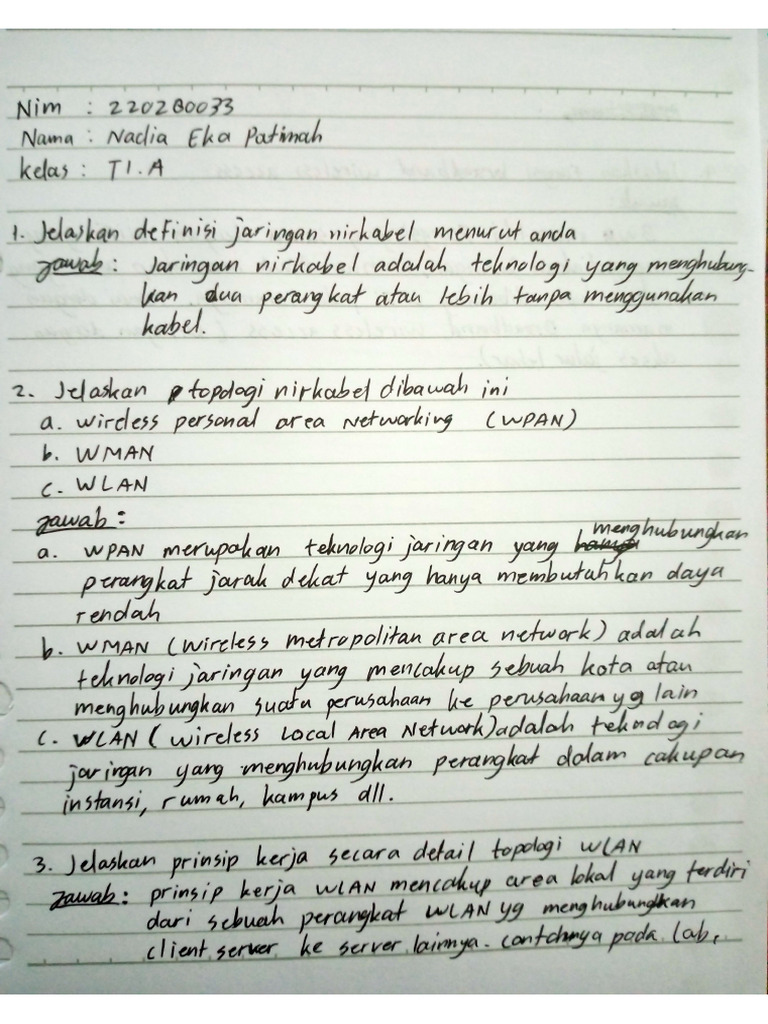 Nim : 220280033
Nama : Nadia Eka Patimah
kelas : TI.A
1. Jelaskan definisi jaringan nirkabel menurut anda
Jawab : Jaringan nirkabel adalah teknologi yang menghubung-
kan dua perangkat atau lebih tanpa menggunakan
kabel.
2. Jelaskan topologi nirkabel dibawah ini
a. Wireless personal area Networking (WPAN)
b. WMAN
c. WLAN
Jawab :
a. WPAN merupakan teknologi jaringan yang menghubungkan
perangkat jarak dekat yang hanya membutuhkan daya
rendah
b. WMAN (Wireless metropolitan area network) adalah
teknologi jaringan yang mencakup sebuah kota atau
menghubungkan suatu perusahaan ke perusahaan yg lain
c. WLAN ( Wireless Local Area Network) adalah teknologi
jaringan yang menghubungkan perangkat dalam cakupan
instansi, rumah, kampus dll.
3. Jelaskan prinsip kerja secara detail topologi WLAN
Jawab : prinsip kerja WLAN mencakup area lokal yang terdiri
dari sebuah perangkat WLAN yg menghubungkan
client server ke server lainnya. contohnya pada lab,